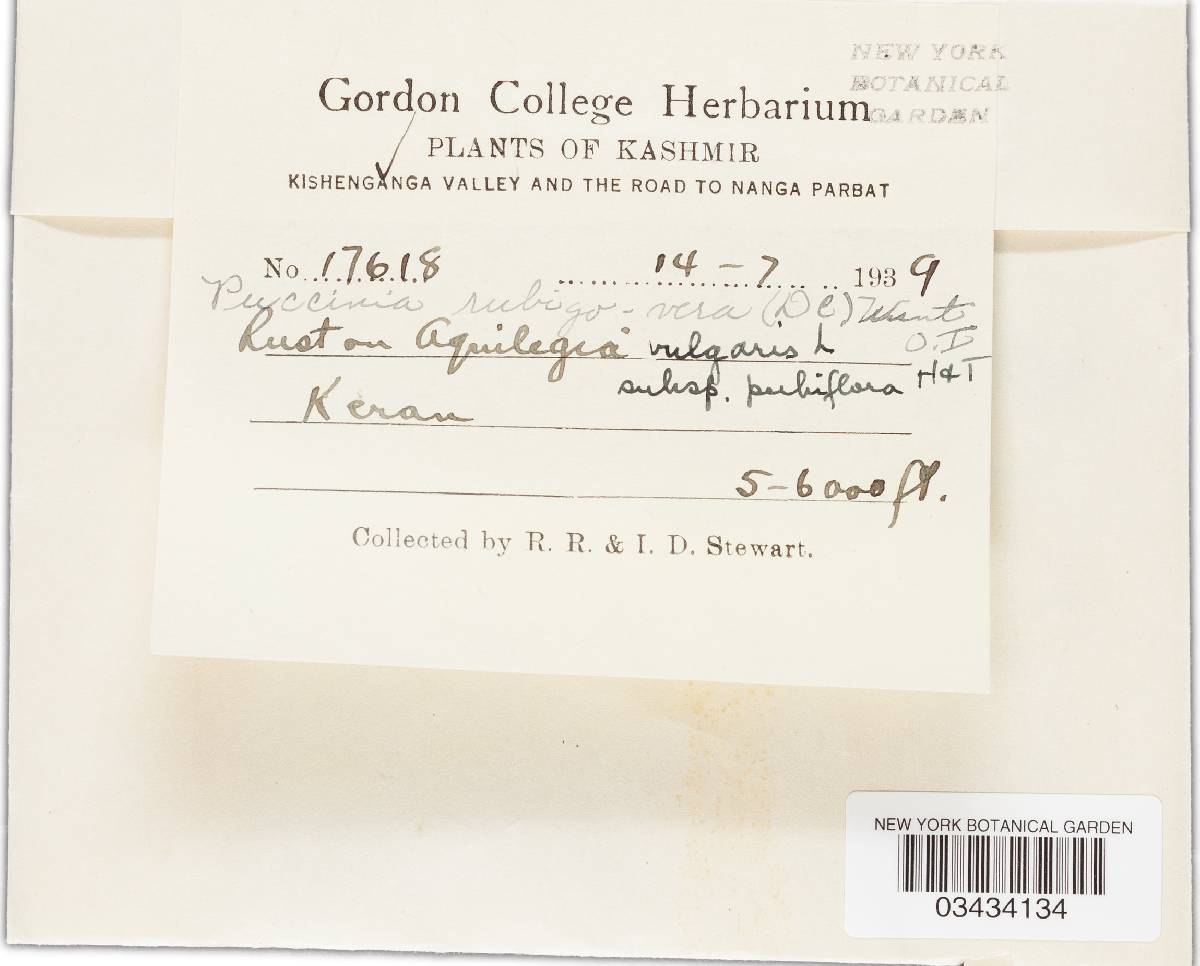 NEW YORK
BOTANICAL
GARDEN
Gordon College Herbarium
PLANTS OF KASHMIR
KISHENGANGA VALLEY AND THE ROAD TO NANGA PARBAT
No. 17618 14-7 1939
Puccinia rubigo-vera (DC) Wint
O.I
Rust on Aquilegia vulgaris L
subsp. pubiflora H&T
Keran
5-6000 ft.
Collected by R. R. & I. D. Stewart.
NEW YORK BOTANICAL GARDEN
03434134